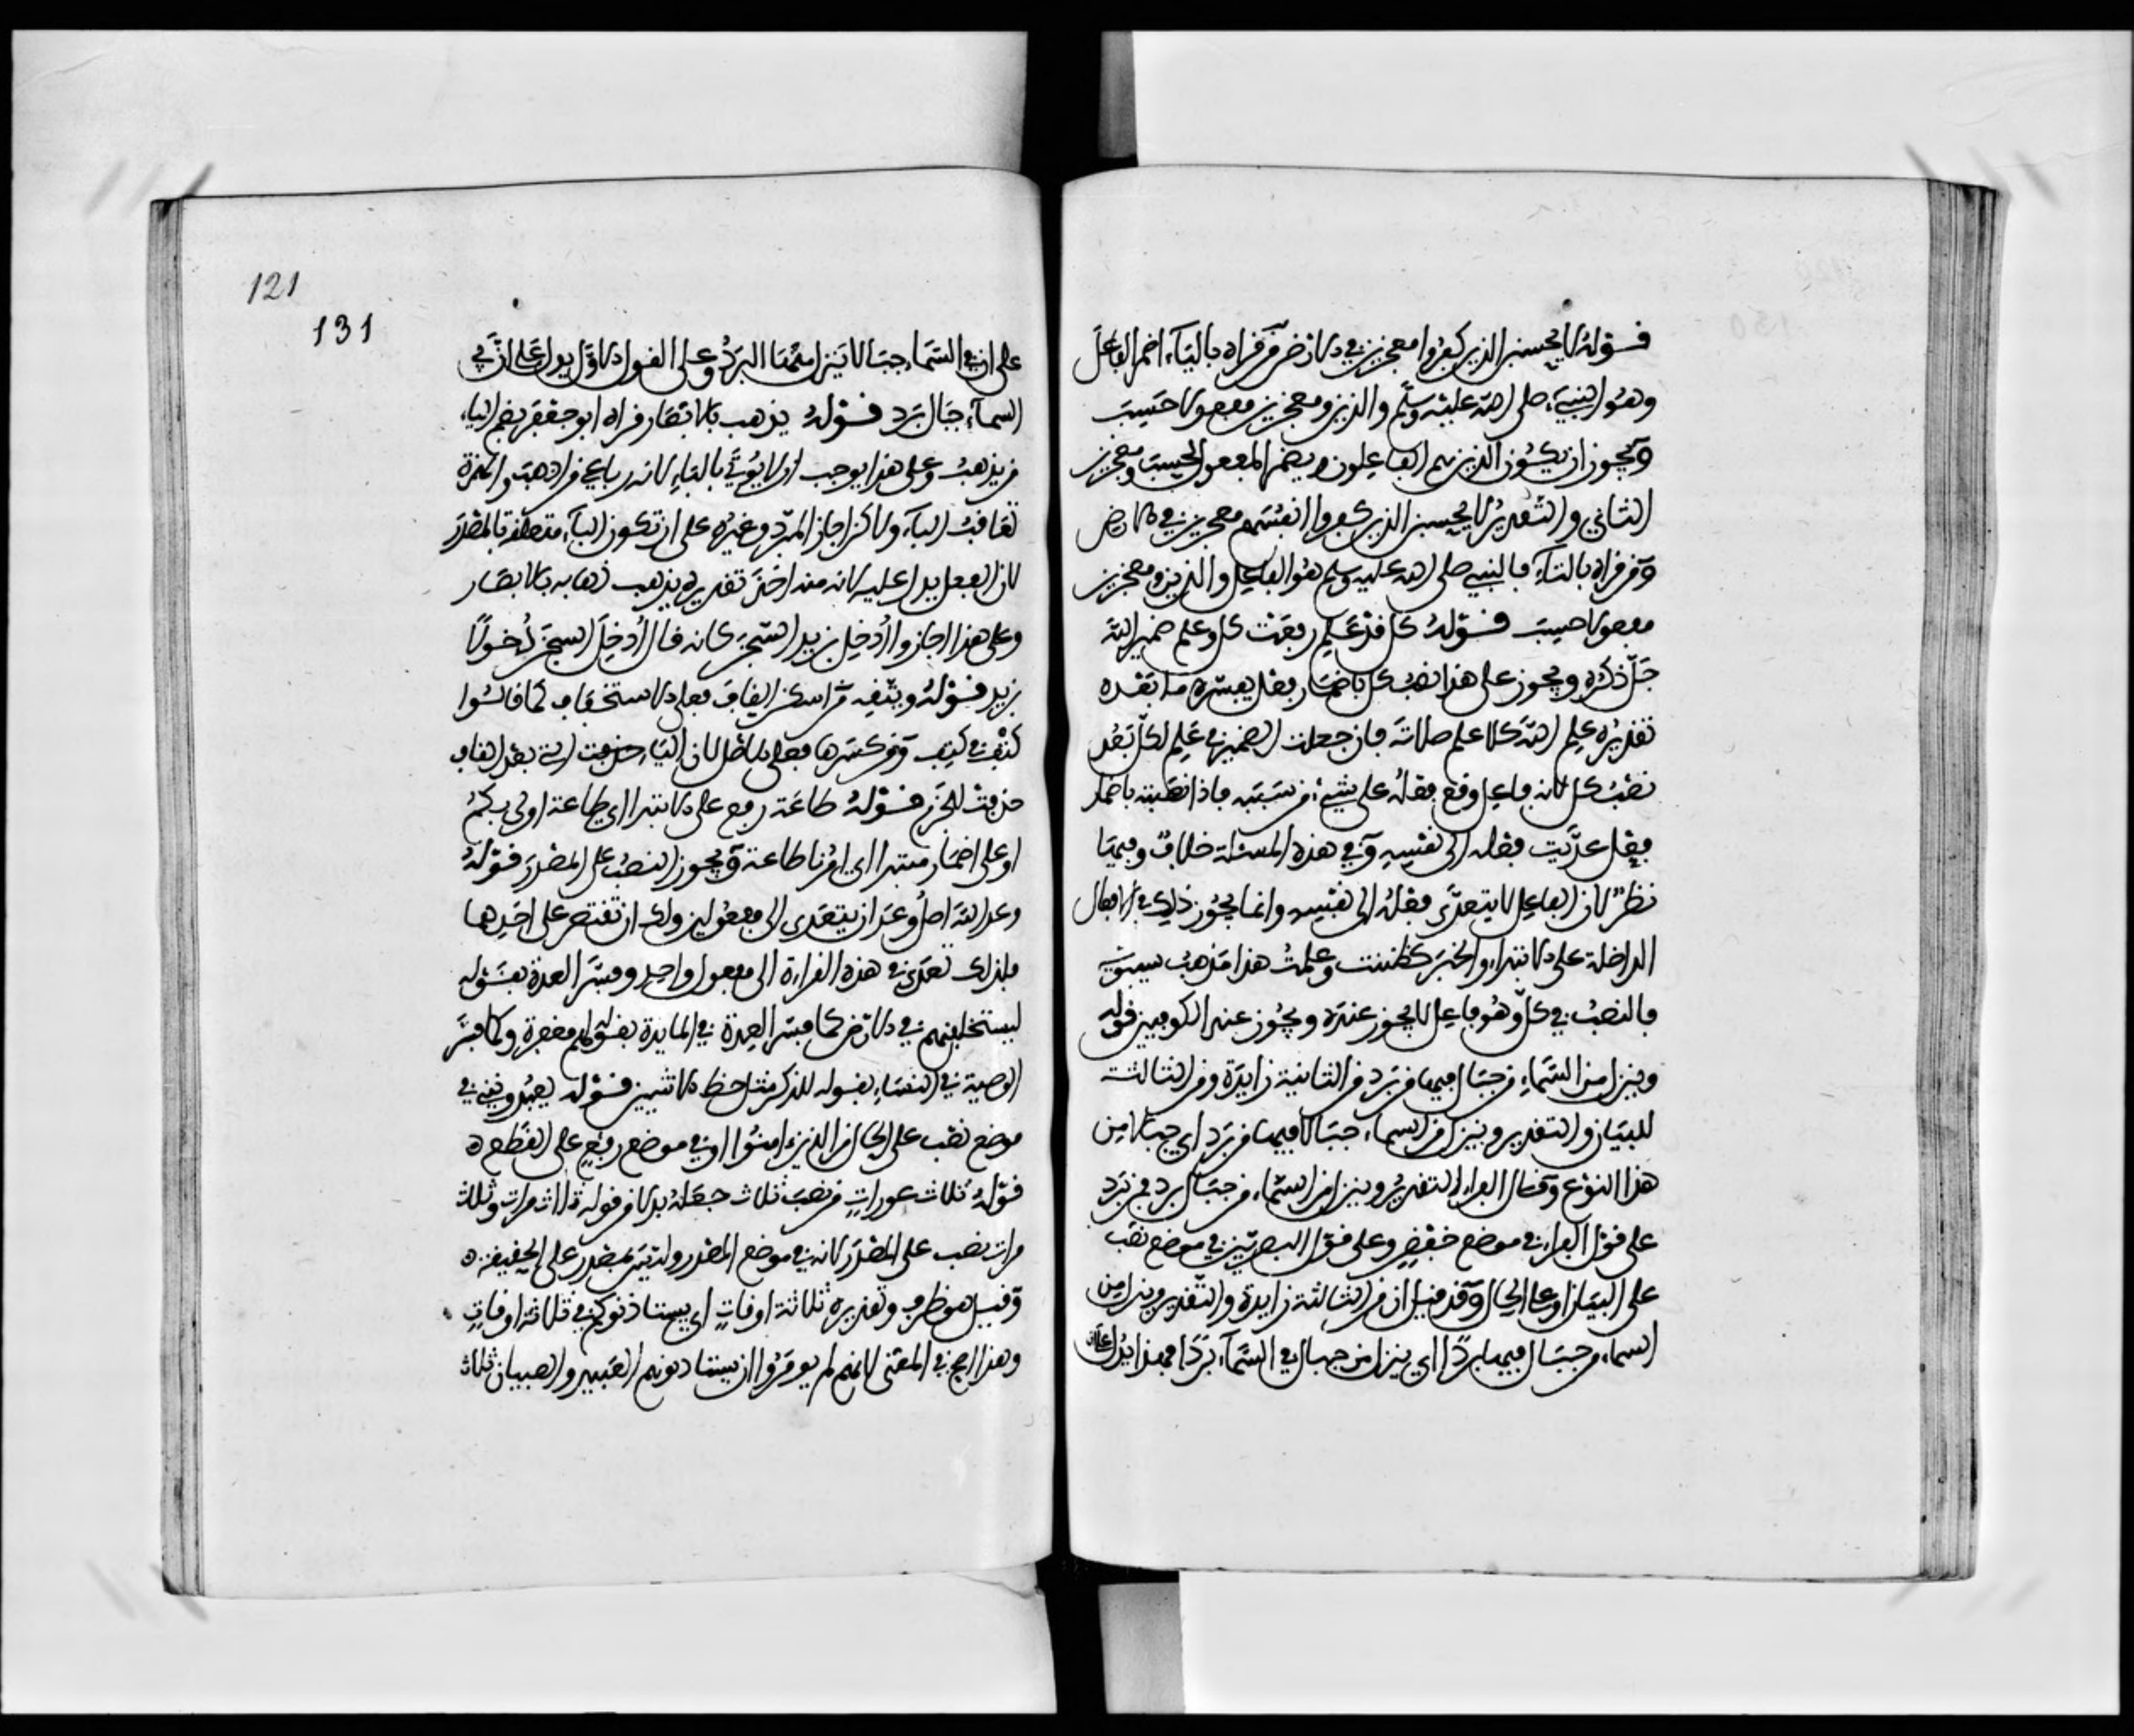 قوله لا يحسبن الذين كفروا معجزين في الارض من قراه بالياء اضمر الفاعل
وهو النبيء صلى الله عليه وسلم والذين ومعجزين مفعولا حسب
ويجوز ان يكون الذين هم الفاعلون ويضمر المفعول لحسب ومعجزين
الثاني والتقدير لا يحسبن الذين كفروا انفسهم معجزين في الارض
ومن قراه بالتاء فالنبي صلى الله عليه وسلم هو الفاعل والذين ومعجزين
مفعولا حسب قوله كل قد علم رفعت كل وعلم ضمير الله
جل ذكره ويجوز على هذا نصب كل باضمار فعل يفسره ما بعده
تقديره علم الله كلا علم صلاته فان جعلت الضمير في علم لكل بعد
نصب كل لانه فاعل وقع فعله على شيء من سببه فاذا نصبته باضمار
فعل عديت فعله الى نفسه وفي هذه المسئلة خلاف وفيها
نظر لان الفاعل لا يتعدى فعله الى نفسه وانما يجوز ذلك في الافعال
الداخلة على الابتداء والخبر كظننت وعلمت هذا مذهب سيبويه
فالنصب في كل وهو فاعل لا يجوز عنده ويجوز عند الكوفيين قوله
وينزل من السماء من جبال فيها من برد من الثانية زايدة ومن الثالثة
للبيان والتقدير وينزل من السماء جبالا فيها من برد اي جبالا من
هذا النوع وقال الفراء التقدير وينزل من السماء من جبال برد فمن برد
على قول الفراء في موضع خفض وعلى قول البصريين في موضع نصب
على البيان او على الحال وقد قيل ان من الثالثة زايدة والتقدير وينزل من
السماء من جبال فيها بردا اي ينزل من جبال في السماء بردا فهذا يدل
121
131
على ان في السماء جبالا ينزل منها البرد وعلى القول الاول يدل على ان في
السماء جبال برد قوله يذهب بالابصار قراه ابو جعفر بضم الياء
من يذهب وعلى هذا يوجب ان لا يؤتى بالباء لانه رباعي من اذهب والهمزة
تعاقب الباء ولاكن اجاز المبرد وغيره على ان تكون الباء متعلقة بالمصدر
لان الفعل يدل عليه لانه منه اخذ تقديره يذهب ذهابه بالابصار
وعلى هذا اجازوا ادخل بزيد السجن كانه قال ادخل السجن دخولا
بزيد قوله ويتقه من اسكن القاف فعلى الاستخفاف كما قالوا
كتف في كتف ومن كسرها فعلى الاصل لان الياء حذفت التي بعد القاف
حذفت للجزم قوله طاعة رفع على الابتداء اي طاعة اولى بكم
او على اضمار مبتدا اي امرنا طاعة ويجوز النصب على المصدر قوله
وعد الله اصل وعد ان يتعدى الى مفعولين ولك ان تقتصر على احدهما
فلذلك تعدى في هذه القراءة الى مفعول واحد وفسر العدة بقوله
ليستخلفنهم في الارض كما فسر العدة في المايدة بقوله لهم مغفرة وكما فسر
الوصية في النساء بقوله للذكر مثل حظ الانثيين قوله يعبدونني في
موضع نصب على الحال من الذين امنوا او في موضع رفع على القطع ه
قوله ثلاث عورات من نصب ثلاث جعله بدلا من قوله ثلاث مرات وثلاث
مرات نصب على المصدر لانه في موضع المصدر وليس بمصدر على الحقيقة ه
وقيل هو ظرف وتقديره ثلاثة اوقات اي يستاذنوكم في ثلاثة اوقات
وهذا اصح في المعنى لانهم لم يومروا ان يستاذنهم العبيد والصبيان ثلاث